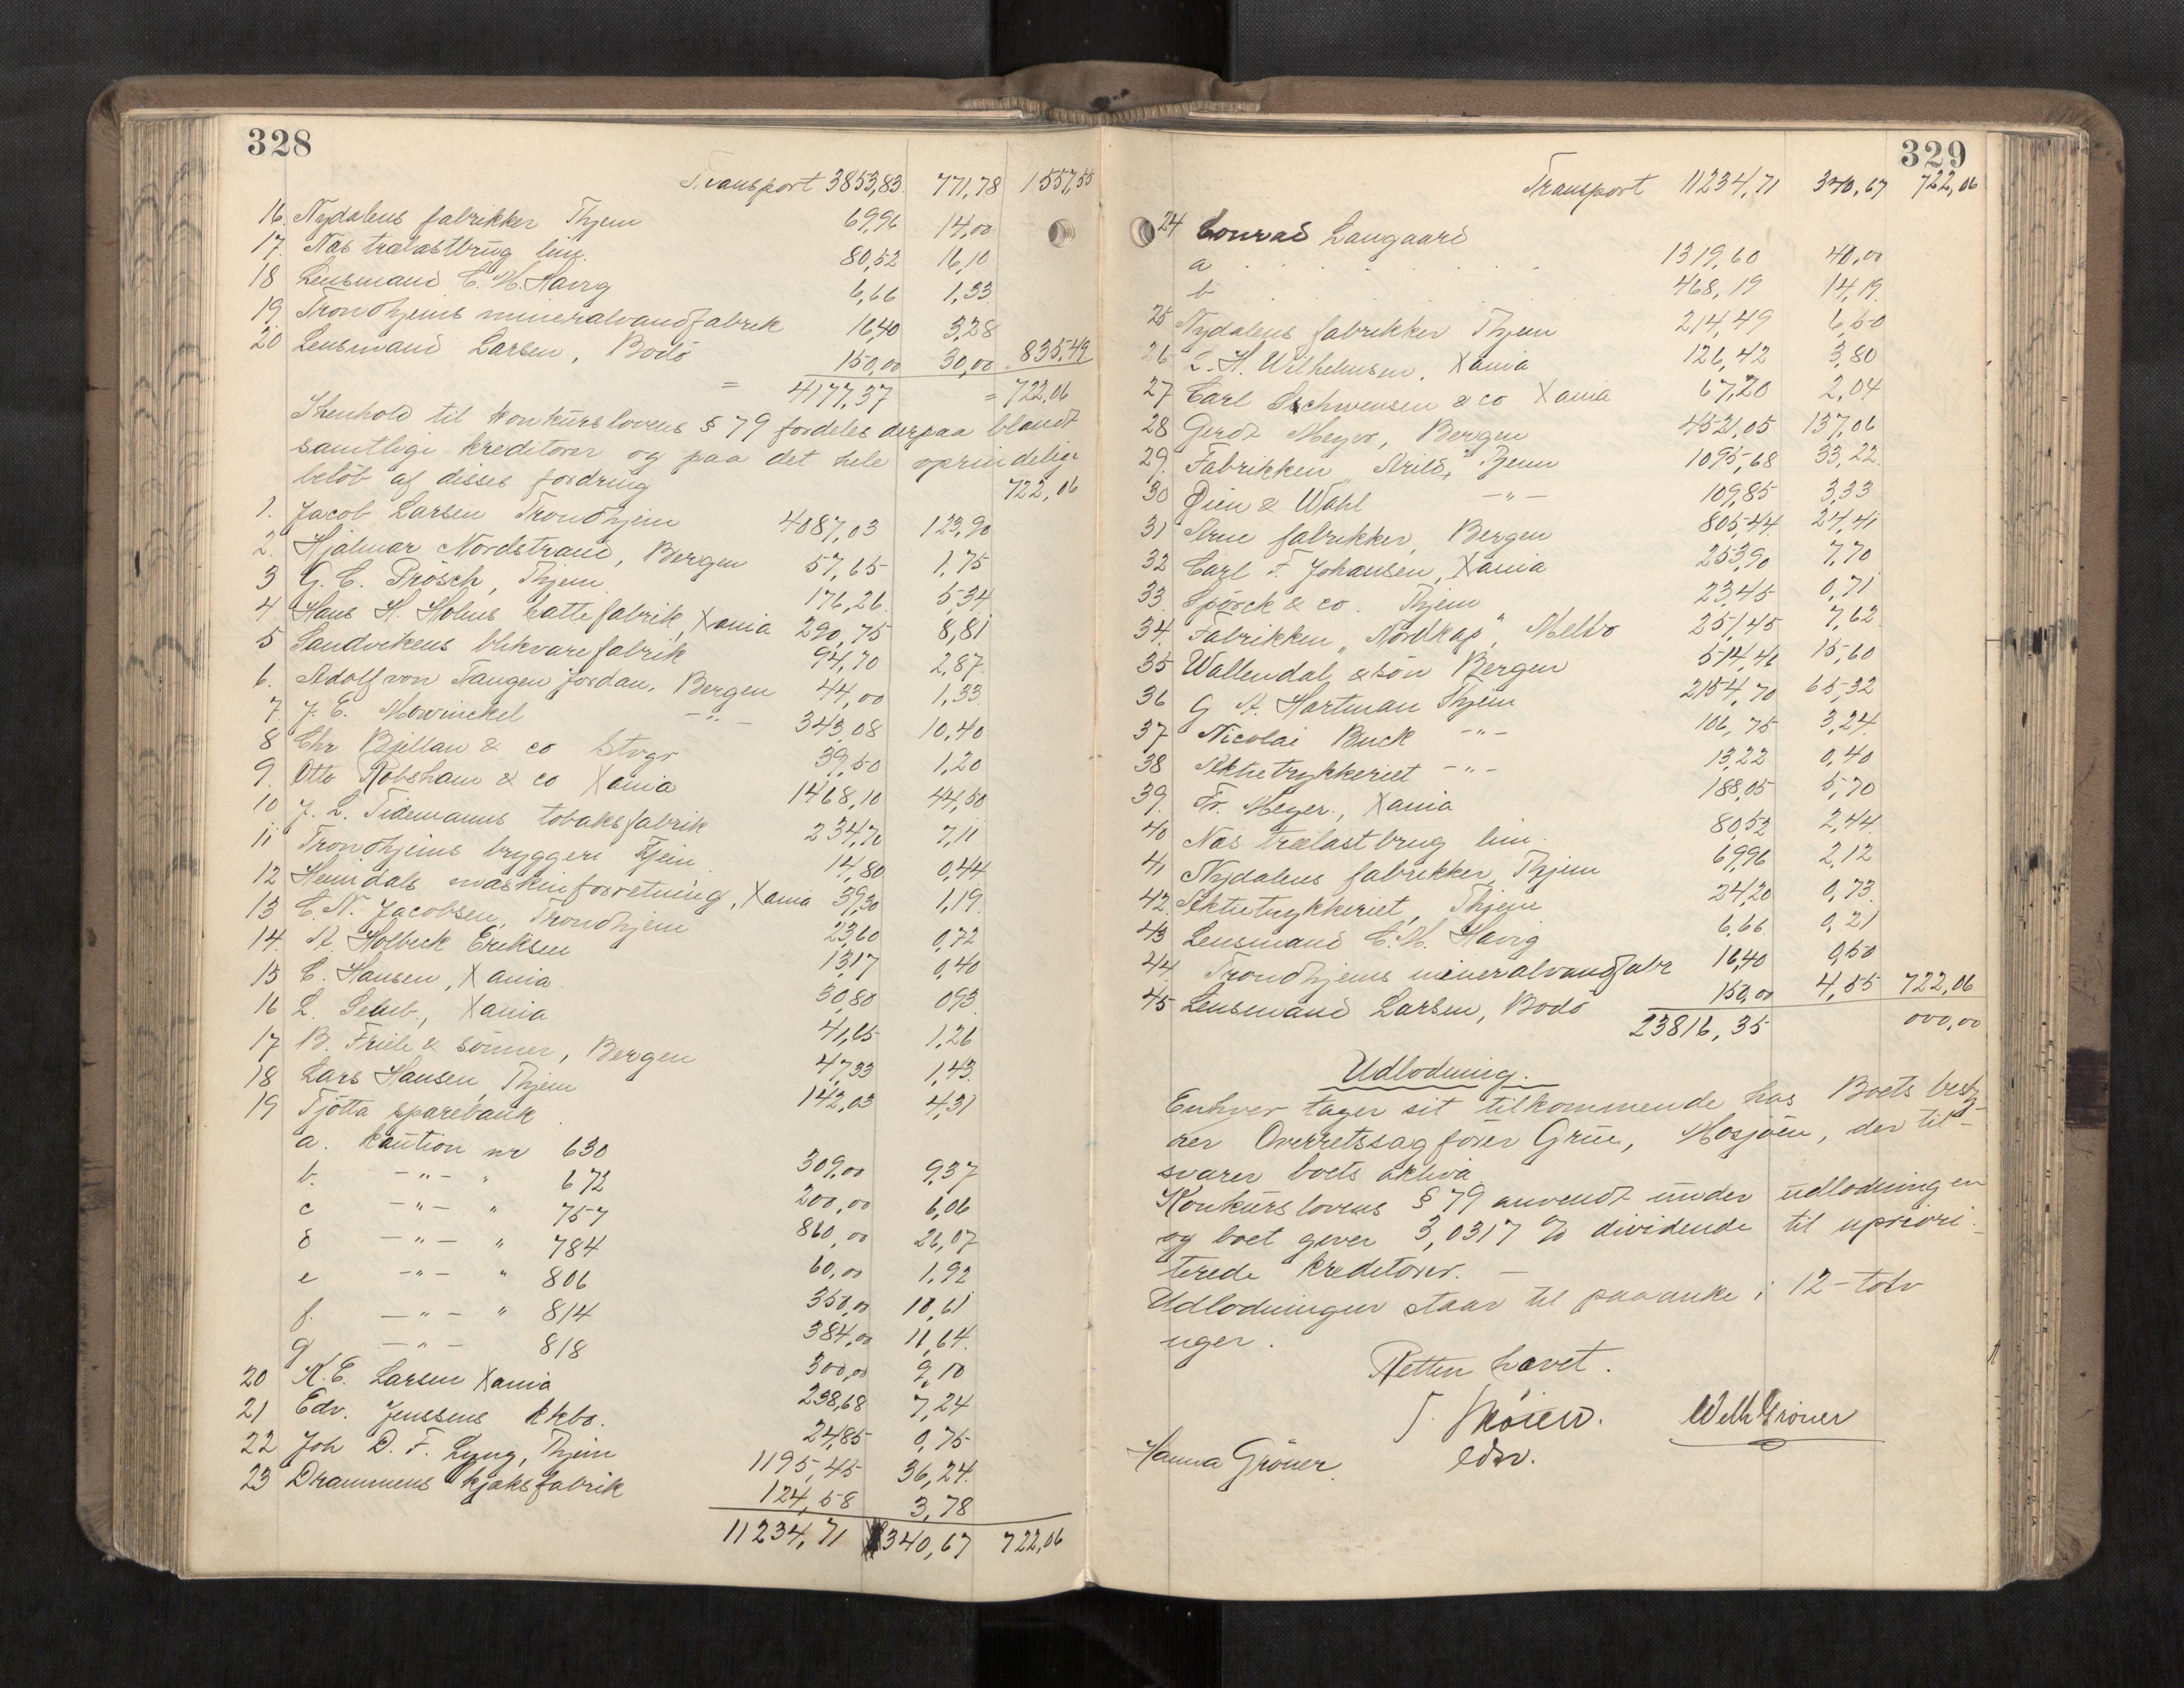 328
Transport 3853,83 771,78 1557,55
16. Nydalens fabrikker Thjem 69,96 14,00
17. Nas trælastbrug lin. 80,52 16,10
18 Lensmand C. M. Havig 6,66 1,33
19. Trondhjems mineralvandfabrik 16,40 3,28
20 Lensmand Larsen, Bodö 150,00 30,00 835,49
= 4177,37 = 722,06
I henhold til konkurslovens § 79 fordeles derpaa blandt
samtlige kreditorer og paa det hele oprindelig
belöb af disses fordring 722,06
1. Jacob Larsen Trondhjem 4087,03 123,90
2. Hjalmar Nordstrand, Bergen 57,65 1,75
3 G. C. Prösch, Thjem 176,26 5,34
4 Hans H. Holms hattefabrik, Xania 290,75 8,81
5 Sandvikens blikvarefabrik 94,70 2,87
6. Adolf von Tangen Jordan, Bergen 44,00 1,33
7. J. E. Mowinckel -"- 343,08 10,40
8 Chr Bjelland & co Stvgr 39,50 1,20
9. Otto Robsham & co Xania 1468,10 44,50
10 J. L. Tidemanns tobaksfabrik 234,70 7,11
11 Trondhjems bryggeri Thjem 14,80 0,44
12 Heimdals maskinforretning, Xania 39,30 1,19
13 C. N. Jacobsen, Trondhjem 23,60 0,72
14. A. Holbeck Eriksen 13,17 0,40
15 C. Hansen, Xania 30,80 0,93
16 L. Semb., Xania 41,65 1,26
17 B. Friele & sönner, Bergen 47,33 1,43
18 Lars Hansen, Thjem 142,03 4,31
19 Tjötta sparebank
a. kaution nr 630 309,00 9,37
b. -"- " 672 200,00 6,06
c -"- " 757 860,00 26,07
d -"- " 784 60,00 1,92
e -"- " 806 350,00 10,61
f. -"- " 814 384,00 11,64
g -"- 818 300,00 9,10
20 K. E. Larsen Xania 238,68 7,24
21 Edv. Jenssens kkbo. 24,85 0,75
22 Joh D. F. Lyng, Thjem 1195,45 36,24
23 Drammens kjæksfabrik 124,58 3,78
11234,71 340,67 722,06
329
Transport 11234,71 340,67 722,06
24 Conrad Langaard
a 1319,60 40,00
b 468,19 14,19
25 Nydalens fabrikker Thjem 214,49 6,50
26 L. H. Wilhelmsen, Xania 126,42 3,80
27 Carl Schwensen & co Xania 67,20 2,04
28 Gerdt Meyer, Bergen 4521,05 137,06
29. Fabrikken "Arild", Thjem 1095,68 33,22
30 Øien & Wahl -"- 109,85 3,33
31 Arne fabrikker, Bergen 805,44 24,41
32 Carl F. Johansen, Xania 253,90 7,70
33 Spörck & co. Thjem 23,45 0,71
34. Fabrikken "Nordkap", Melbo 251,45 7,62
35 Wallendal & sön Bergen 514,46 15,60
36 G A. Hartman Thjem 2154,70 65,32
37 Nicolai Buck -"- 106,75 3,24
38 Aktietrykkeriet -"- 13,22 0,40
39. Fr. Meyer., Xania 188,05 5,70
40 Nas trælastbrug lin. 80,52 2,44
41 Nydalens fabrikker, Thjem 69,96 2,12
42. Aktietrykkeriet, Thjem 24,20 0,73
43 Lensmand C. M. Havig 6,66 0,21
44 Trondhjems mineralvandfabr 16,40 0,50
45 Lensmand Larsen, Bodö 150,00 4,55 722,06
23816,35 000,00
Udlodning.
Enhver tager sit tilkommende hos Boets besty-
rer Overretssagförer Grüe, Mosjöen, der til-
svarer boets aktiva
Konkurslovens § 79 anvendt under udlodningen
og boet giver 3,0317 % dividende til upriori-
terede kreditorer. —
Udlodningen staar til paaanke i 12 - tolv
uger.
Retten hævet.
Wilh Gröner
Hanna Gröner. edsv.